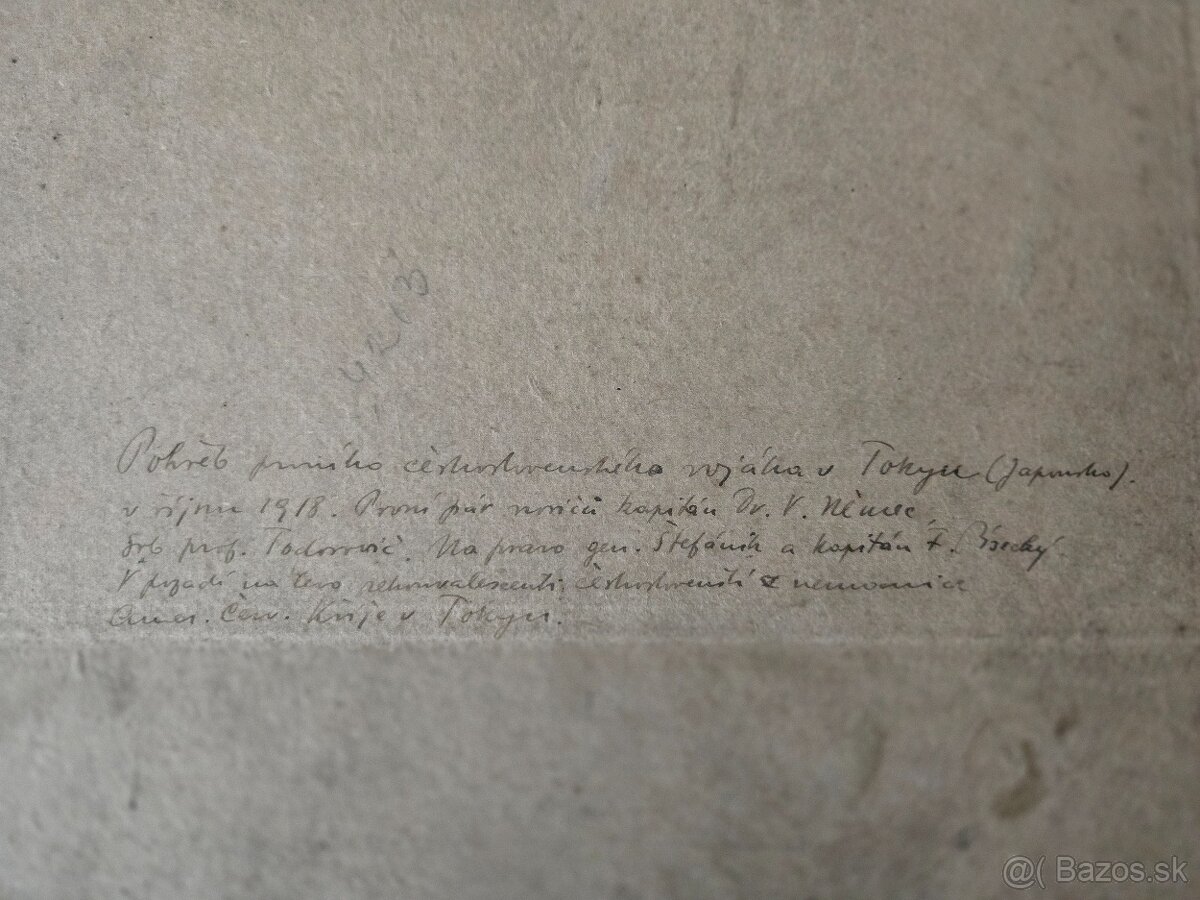 4213
Pohřeb prvního československého vojáka v Tokyu (Japonsko).
v říjnu 1918. První pár nosičů kapitán Dr. V. Němec,
Srb prof. Todorovič. Na pravo gen. Štefánik a kapitán F. Písecký.
V pozadí na levo rekonvalescenti českoslovenští z nemocnice
Amer. Červ. Kříže v Tokyu.
@( Bazos.sk